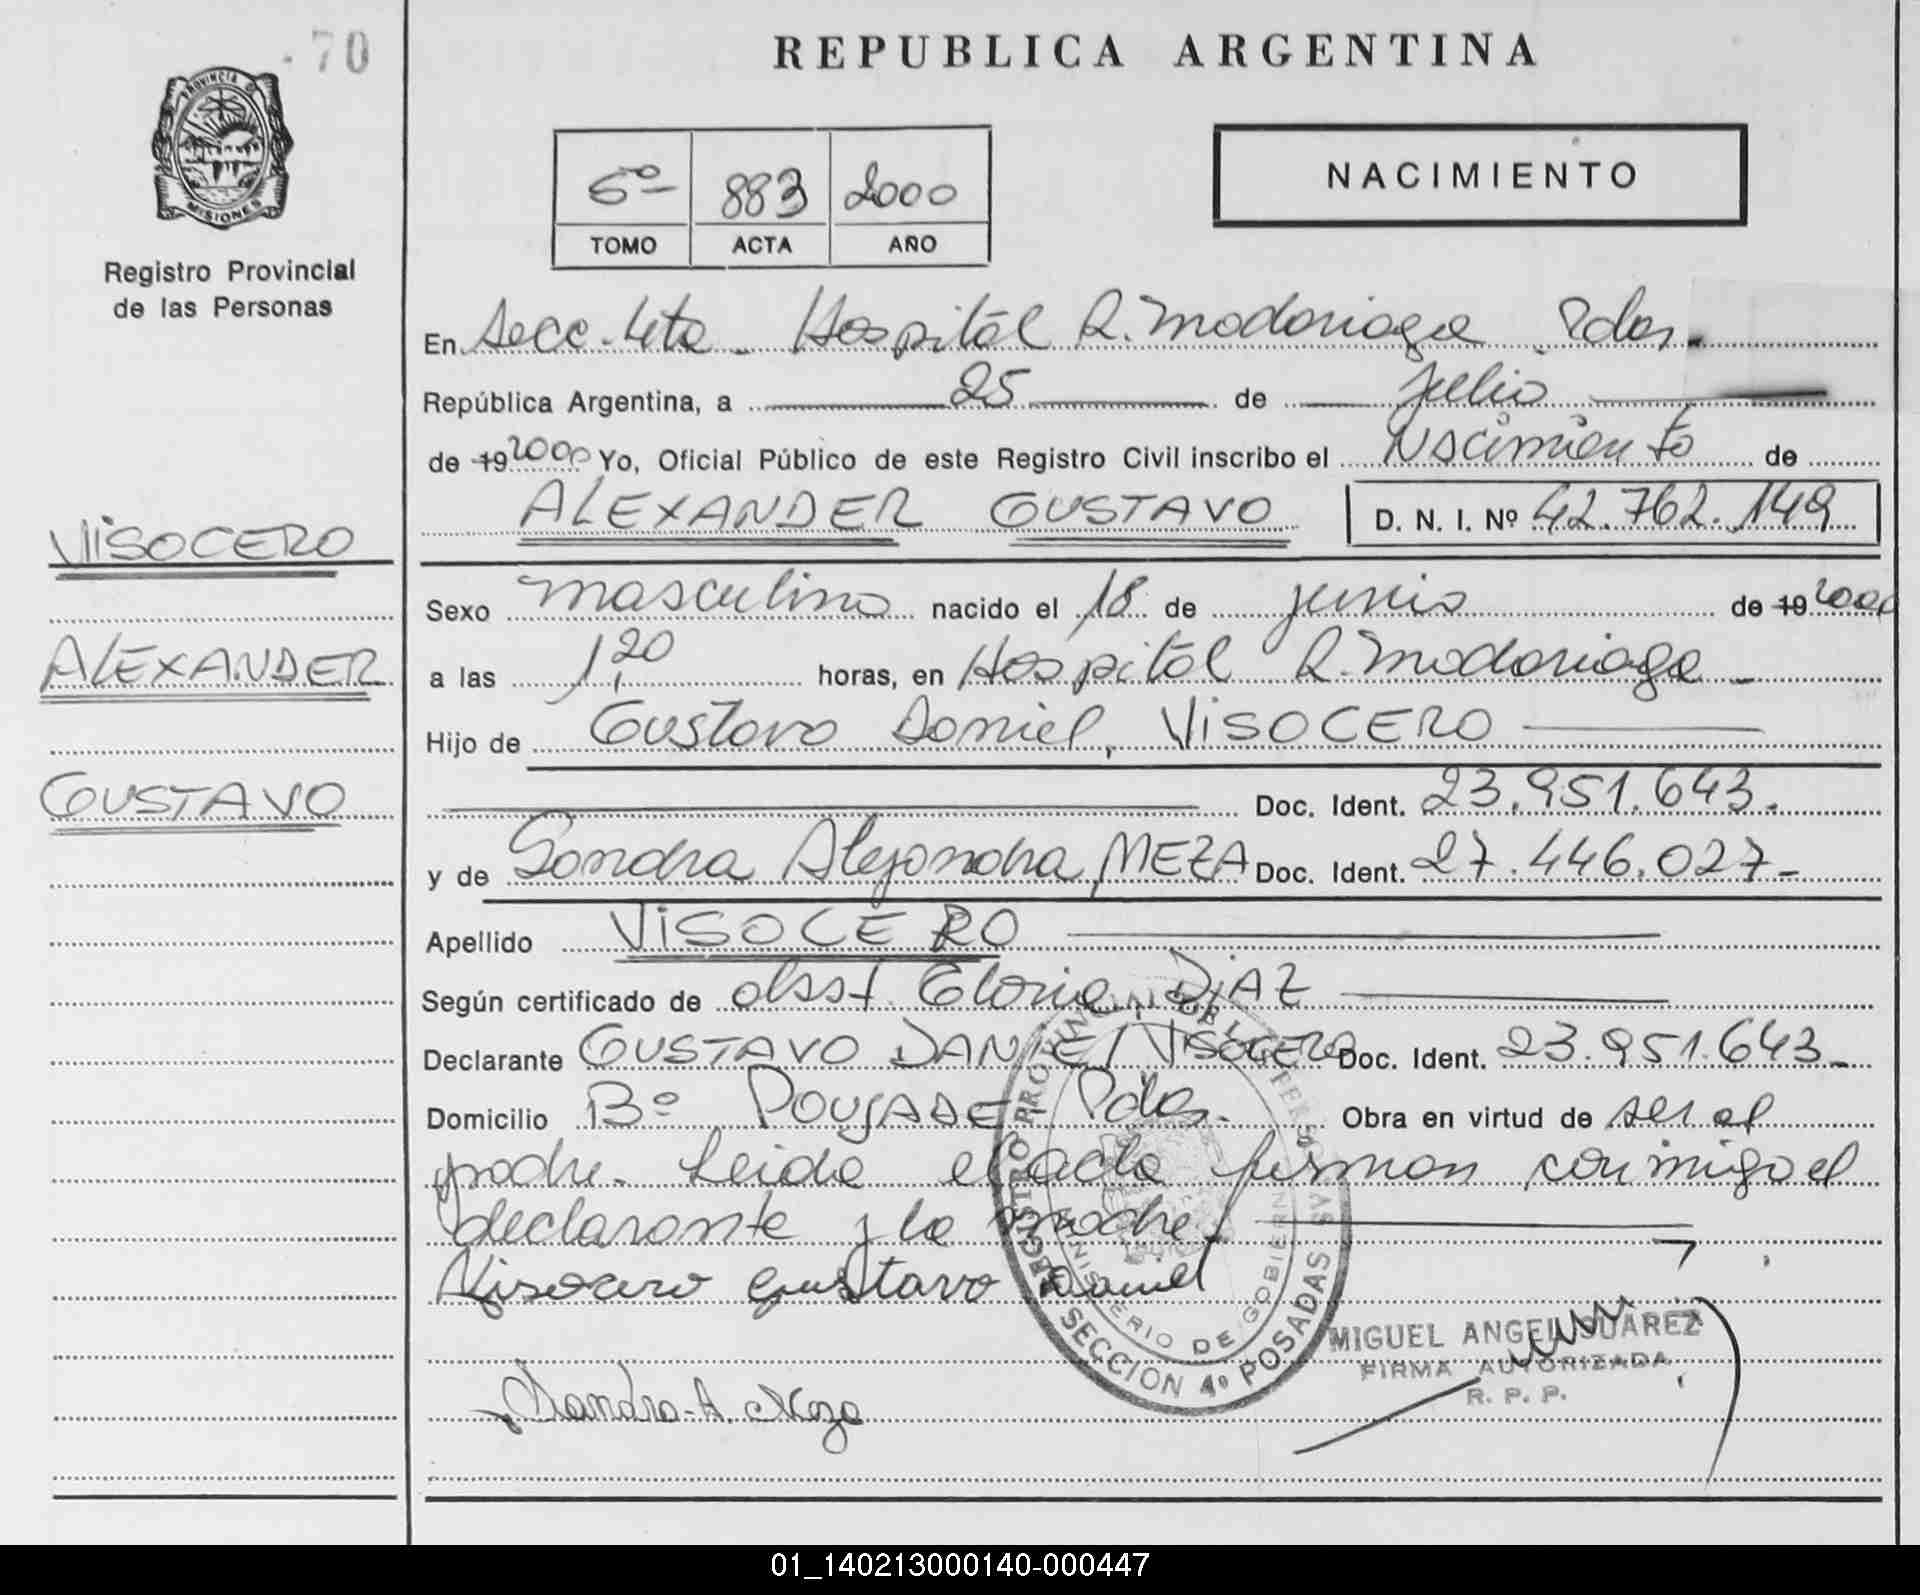 70
REPUBLICA ARGENTINA
PROVINCIA DE
MISIONES
Registro Provincial
de las Personas
6º 883 2000
TOMO ACTA AÑO
NACIMIENTO
En Secc. 4ta - Hospital R. Madariaga Pdas.
República Argentina, a 25 de julio
de 19 2000 Yo, Oficial Público de este Registro Civil inscribo el Nacimiento de
ALEXANDER GUSTAVO D. N. I. Nº 42.762.149
VISOCERO
ALEXANDER
GUSTAVO
Sexo masculino nacido el 18 de junio de 19 2000
a las 1,20 horas, en Hospital R. Madariaga -
Hijo de Gustavo Daniel, VISOCERO
Doc. Ident. 23.951.643.
y de Sandra Alejandra, MEZA Doc. Ident. 27.446.027-
Apellido VISOCERO
Según certificado de obst. Gloria, DIAZ
Declarante GUSTAVO DANIEL VISOCERO Doc. Ident. 23.951.643-
Domicilio Bº POUJADE, Pdas. Obra en virtud de ser el
padre. Leida el acta firman conmigo el
declarante y la madre.
Visocero Gustavo Daniel
Sandra A. Meza
REGISTRO PROVINCIAL DE LAS PERSONAS
MINISTERIO DE GOBIERNO
SECCION 4º POSADAS
MIGUEL ANGEL SUAREZ
FIRMA AUTORIZADA
R. P. P.
01_140213000140-000447